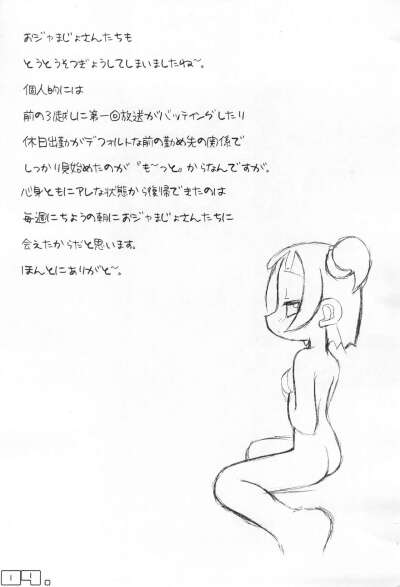 おジャまじょさんたちも
とうとうそつぎょうしてしまいましたね〜。
個人的には
前の引越しに第一回放送がバッティングしたり
休日出勤がデフォルトな前の勤め先の関係で
しっかり見始めたのが『も〜っと』からなんですが。
心身ともにアレな状態から復帰できたのは
毎週にちようの朝におジャまじょさんたちに
会えたからだと思います。
ほんとにありがと〜。
09.